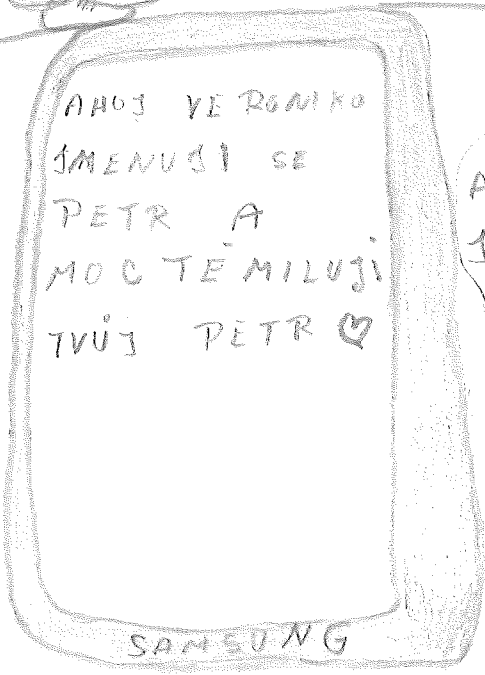 AHOJ VERONIKO
JMENUJI SE
PETR A
MOC TĚ MILUJI
TVŮJ PETR ♡
SAMSUNG